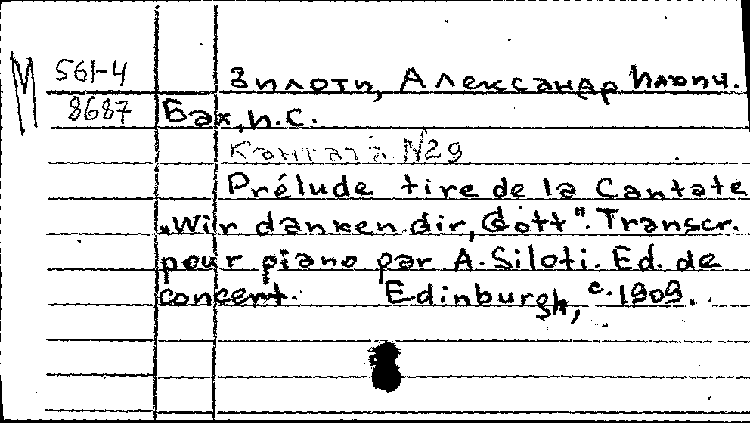 М 561-4 Зилоти, Александр Ильич.
8687 Бах, И. С.
Кантата №29
Prélude tire de la Cantate
„Wir danken dir, Gott". Transcr.
pour piano par A. Siloti. Ed. de
concert. Edinburgh, c. 1909.